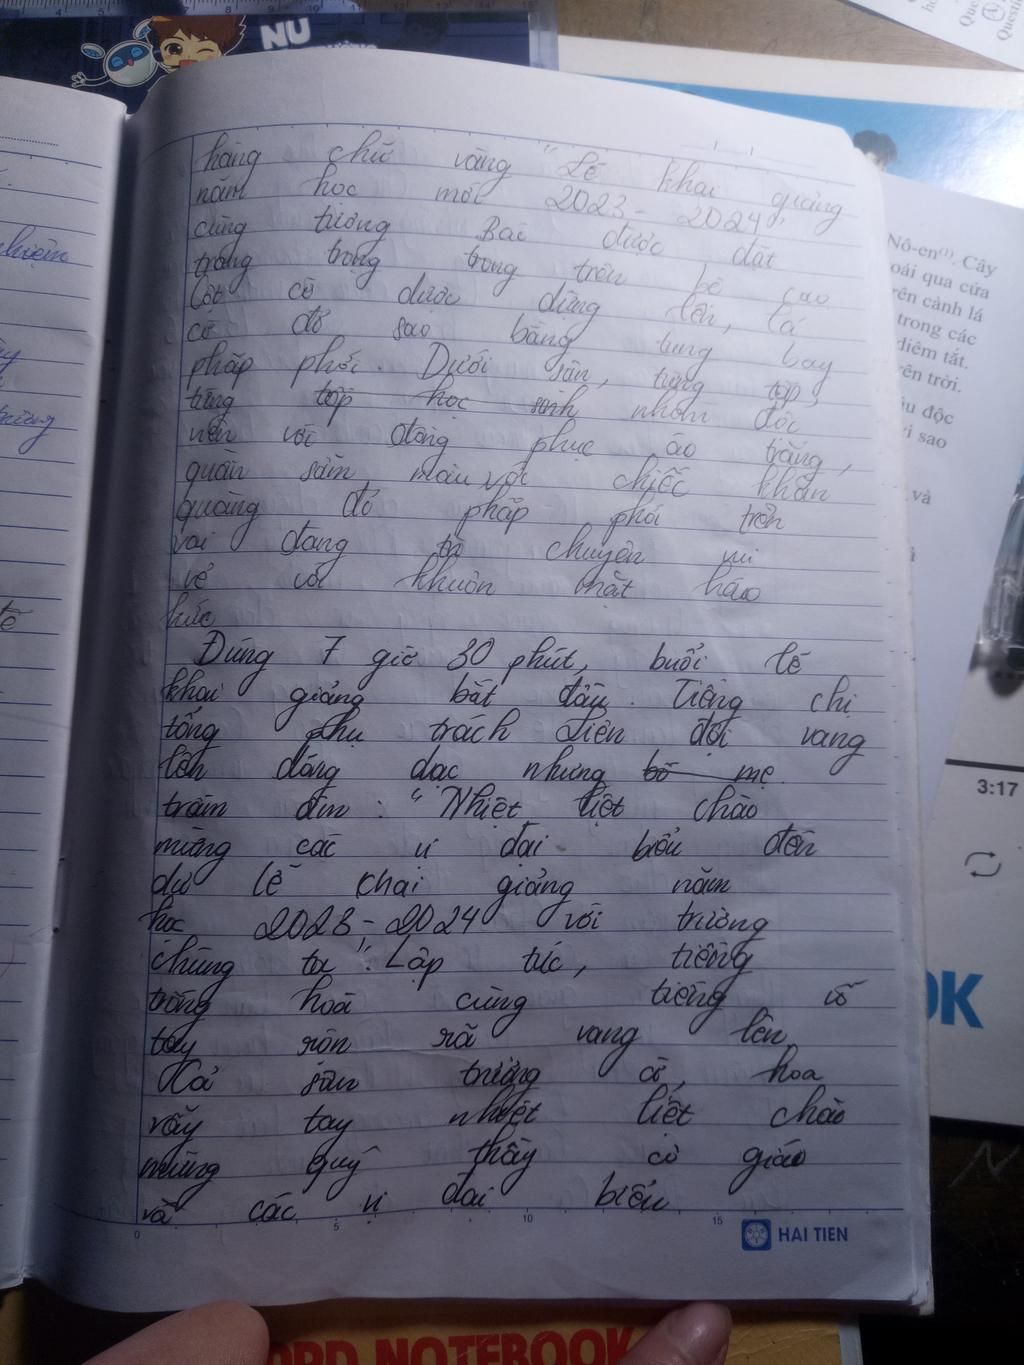 NU
hàng chữ vàng "Lễ khai giảng
năm học mới 2023 - 2024",
cùng tượng Bác được đặt
trang trọng trong trên bệ cao
Cột cờ được dựng lên, lá
cờ đỏ sao bằng tung bay
phấp phới. Dưới sân, từng tốp,
từng tốp học sinh nhóm đội
nên với đồng phục áo trắng,
quần sẫm màu với chiếc khăn
quàng đỏ phấp phới trên
vai đang trò chuyện vui
vẻ với khuôn mặt háo
hức
Đúng 7 giờ 30 phút, buổi lễ
khai giảng bắt đầu. Tiếng chị
tổng phụ trách Liên đội vang
lên dõng dạc nhưng bố mẹ
trầm ấm: "Nhiệt liệt chào
mừng các vị đại biểu đến
dự lễ khai giảng năm
học 2023 - 2024 với trường
chúng ta". Lập tức, tiếng
trống hoà cùng tiếng vỗ
tay ròn rã vang lên.
Cả sân trường cờ, hoa
vẫy tay nhiệt liệt chào
mừng quý thầy cô giáo
và các vị đại biểu
0 5 10 15
HAI TIEN
Nô-en(1). Cây
oái qua cửa
rên cành lá
trong các
diêm tắt.
rên trời.
độc
sao
và
3:17
OK
ORD NOTEBOOK